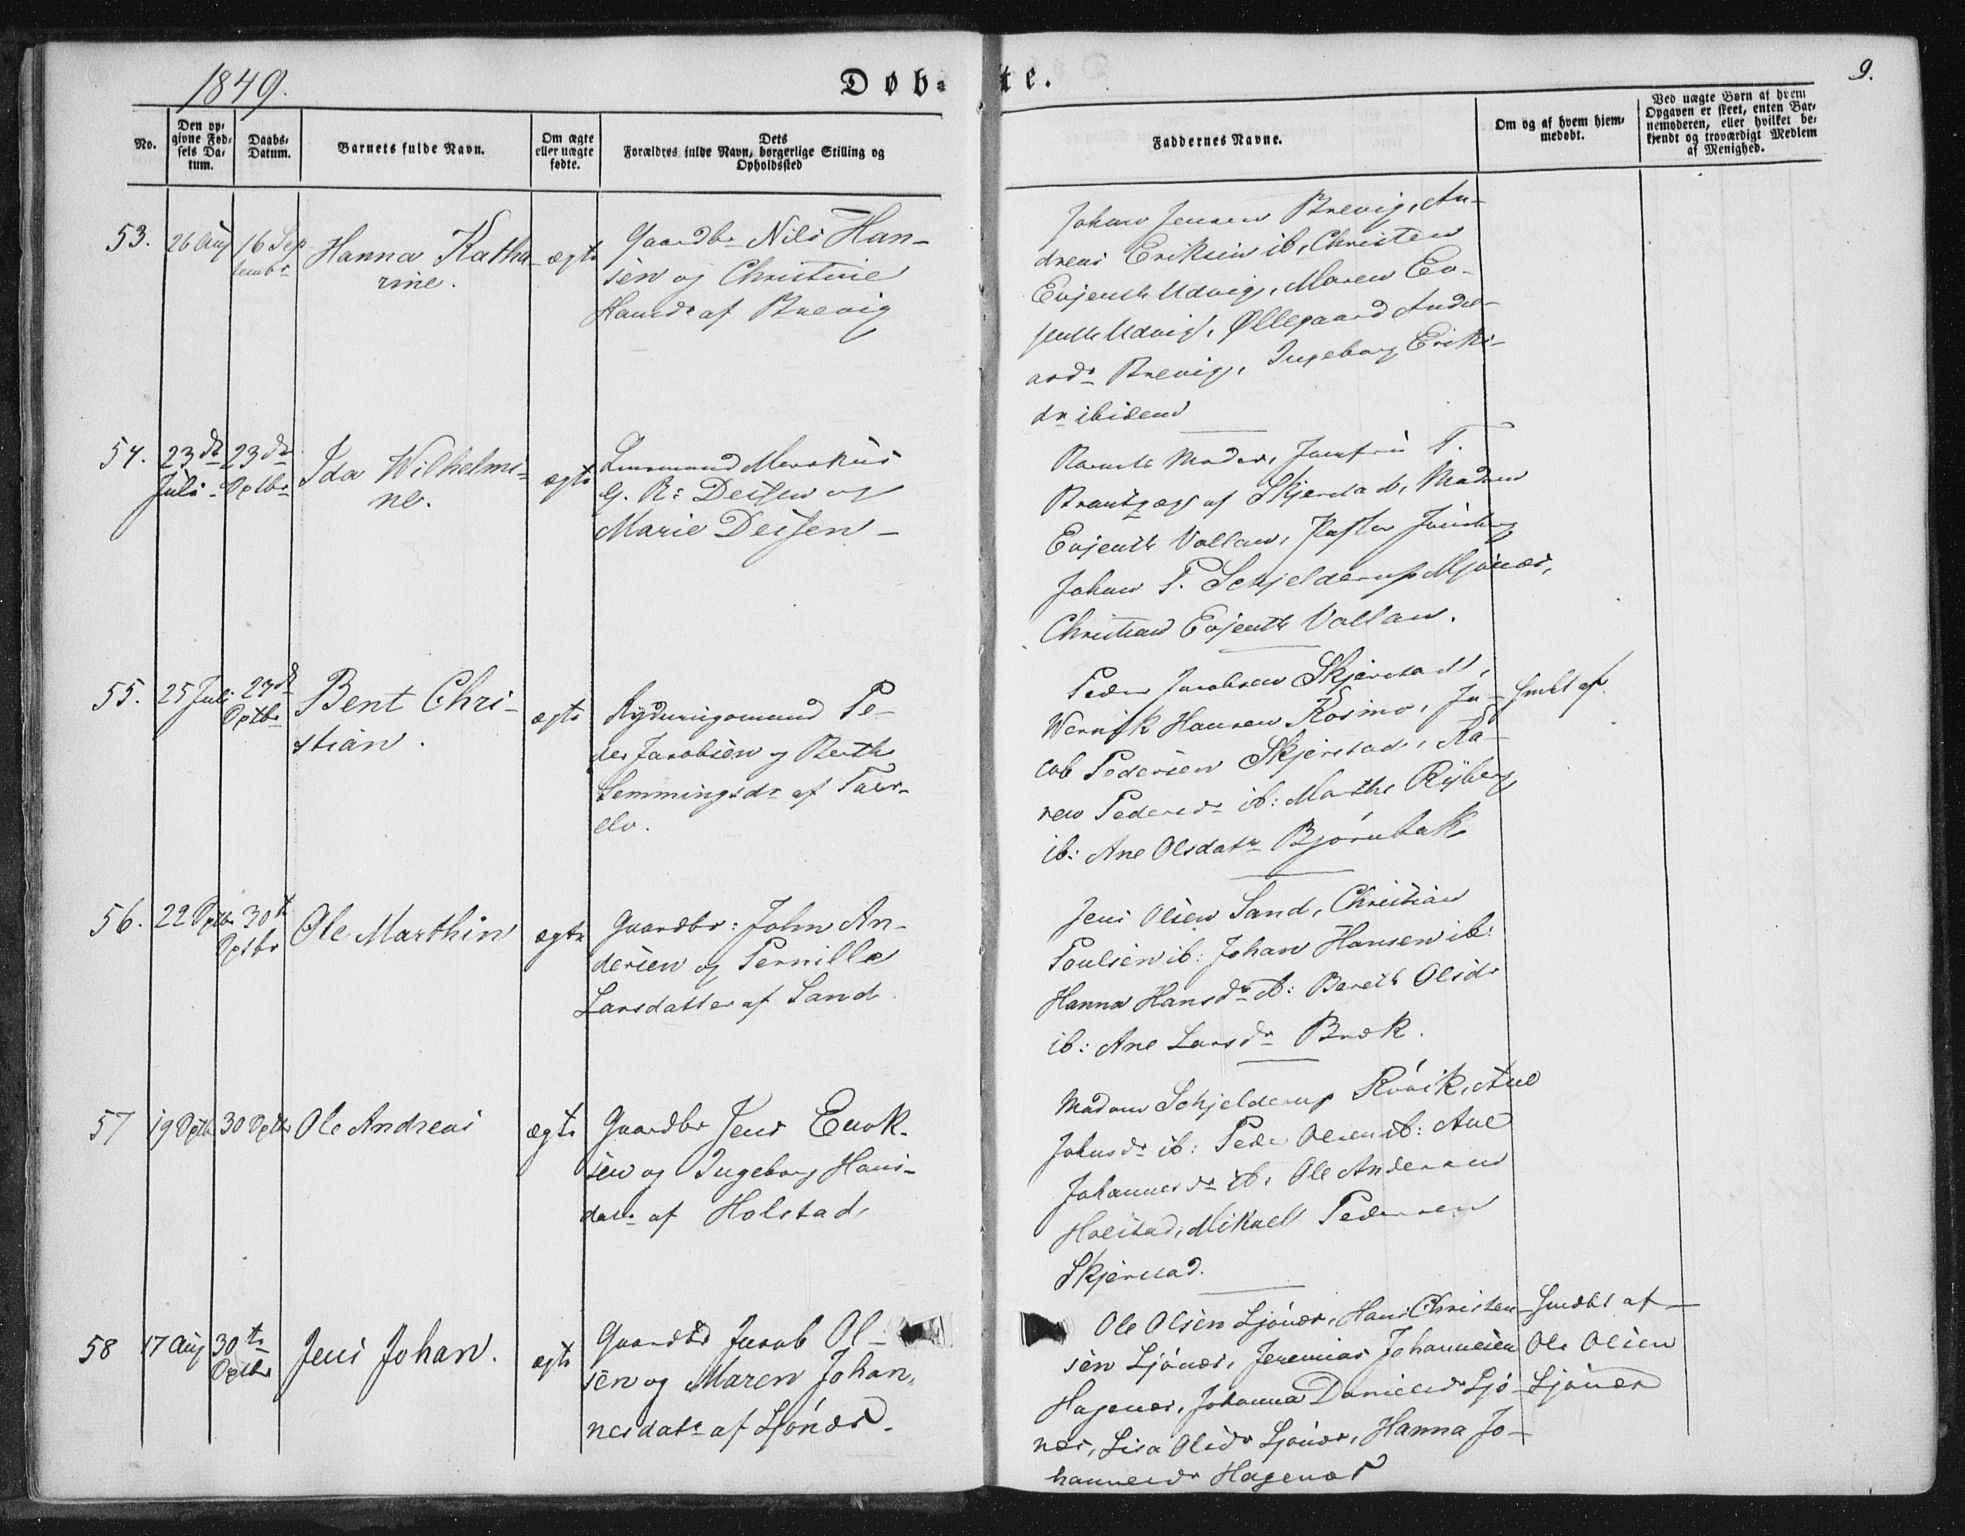 1849.
Døb-
te.
9.
No.
Den op-
givne Fød-
sels Da-
tum.
Daabs-
Datum.
Barnets fulde Navn.
Om ægte
eller uægte
fødte.
Dets
Forældres fulde Navn, borgerlige Stilling og
Opholdssted
Faddernes Navne.
Om og af hvem hjem-
medøbt.
Ved uægte Børn af hvem
Opgaven er skeet, enten Bar-
nemoderen, eller hvilket be-
kjendt og troværdigt Medlem
af Menighed.
53.
26 Aug
16 Sep
tembr
Hanna Katha
rine.
ægte
Gaardbr Nils Han-
sen og Christine
Hansdr af Brevig
Johan Jensen Brevig, An-
dreas Eriksen ib, Christen
Evjenth Udvig, Maren Ev-
jenth Udvig, Øllegaard Ande-
arsdr Brevig, Ingeborg Eriks-
dr ibidem
54.
23de
Juli
23de
Sptbr
Ida Wilhelmi-
ne.
ægte
Lensmand Markus
G. R: Deissen og
Marie Deissen
Barnets Moder, Jomfru T.
af Skjerstad, Madam
Evjenth Vollan, Pastor
Johan T. Schjelderup Mjønes,
Christian Evjenth Vollan.
55.
25 Juli
23de
Sptbr
Bent Chri-
stian.
ægte
Rydningsmand Pe-
der Jacobsen og Berth
Lemmingsdr af
elv.
Peder Jacobsen Skjerstad,
Hansen Kosmo, Ja-
cob Pedersen Skjerstad, Ka-
ren Pedersdr ib: Marthe Ryberg
ib: Ane Olsdatr Bjørnbak
hmbt af
56.
22 Sptbr
30te
Sptbr
Ole Marthin
ægte
Gaardbr: John An-
dersen og Pernille
Larsdatter af Sand
Jens Olsen Sand, Christian
Poulsen ib: Johan Hansen ib:
Hanna Hansdr ib: Bereth Olsdr
ib: Ane Larsdr Bræk.
57
19 Sptbr
30 Sptbr
Ole Andreas
ægte
Gaardbr Jens Enok-
sen og Ingeborg Hans-
datr af Holstad,
Madam Schjelderup Røvik, Ane
Johnsdr ib: Peder Olsen ib: Ane
Johannesdr ib, Ole Andersen
Holstad, Mikael Pedersen
Skjerstad.
58
17 Aug
30te
Sptbr
Jens Johan.
ægte
Gaardbr Jacob Ol-
sen og Maren Johan-
nesdatr af Ljønes.
Ole Olsen Ljønes, Hans Christen-
sen Ljønes, Jeremias Johannesen
Hagenes, Johanna Danielsdr Ljø-
nes, Lisa Olsdr Ljønes, Hanna Jo-
hannesdr Hagenes
hmdbt af
Ole Olsen
Ljønes